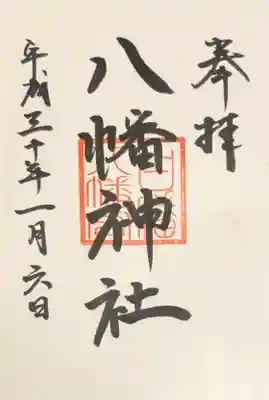 奉拝
八幡神社
平成三十年一月六日